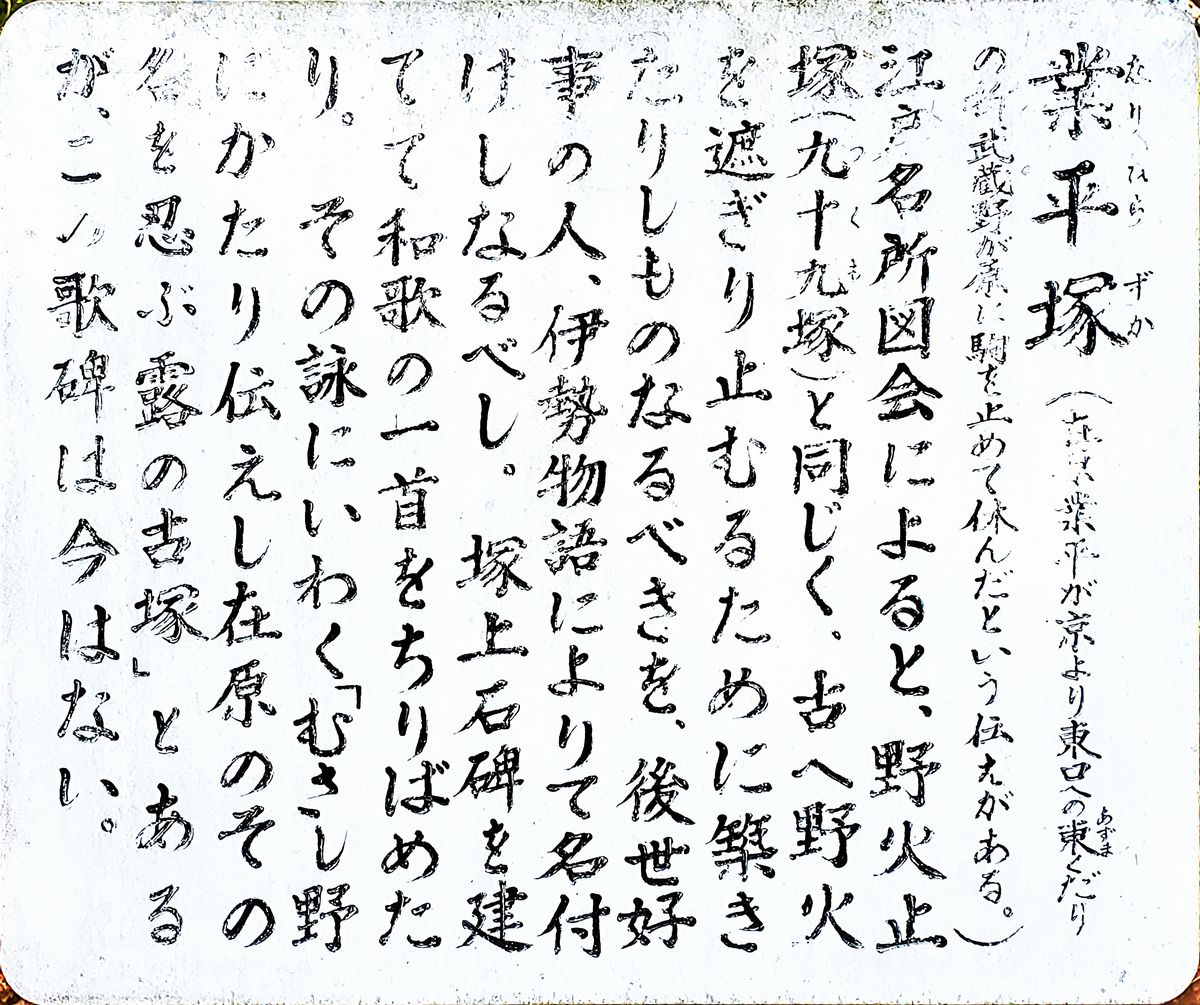 業平塚(在原業平が京より東口への東くだり
の折武蔵野が原に駒を止めて休んだという伝えがある。)
江戸名所図会によると、野火止
塚(九十九塚)と同じく、古へ野火
を遮ぎり止むるために築き
たりしものなるべきを、後世好
事の人、伊勢物語によりて名付
けしなるべし。塚上石碑を建
てて和歌の一首をちりばめた
り。その詠にいわく「むさし野
にかたり伝えし在原のその
名を忍ぶ露の古塚」とある
が、この歌碑は今はない。